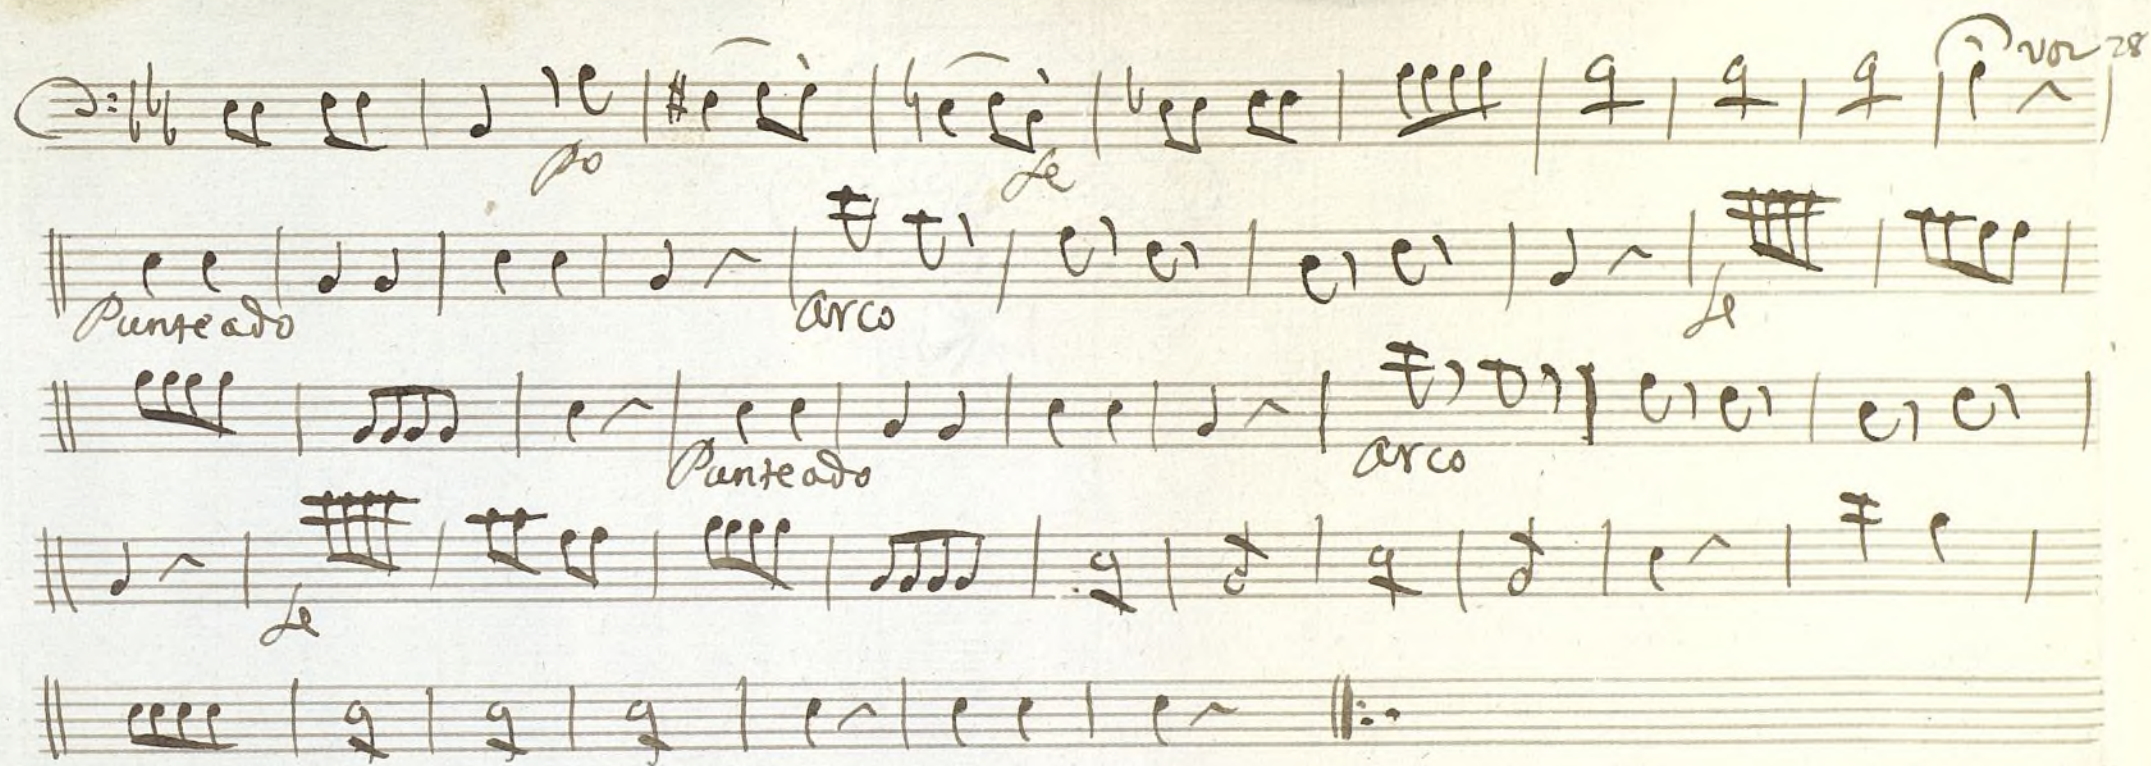 voz 28
po fe
Punteado arco fe
Punteado arco
fe